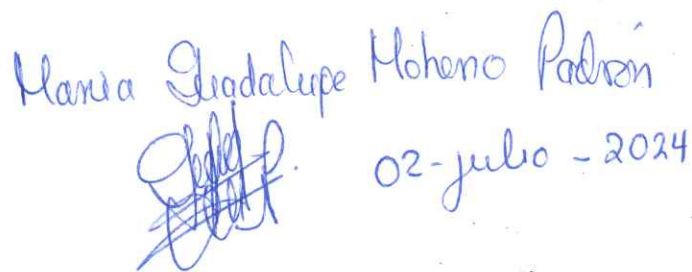 Maria Guadalupe Moheno Padrón
02-julio-2024